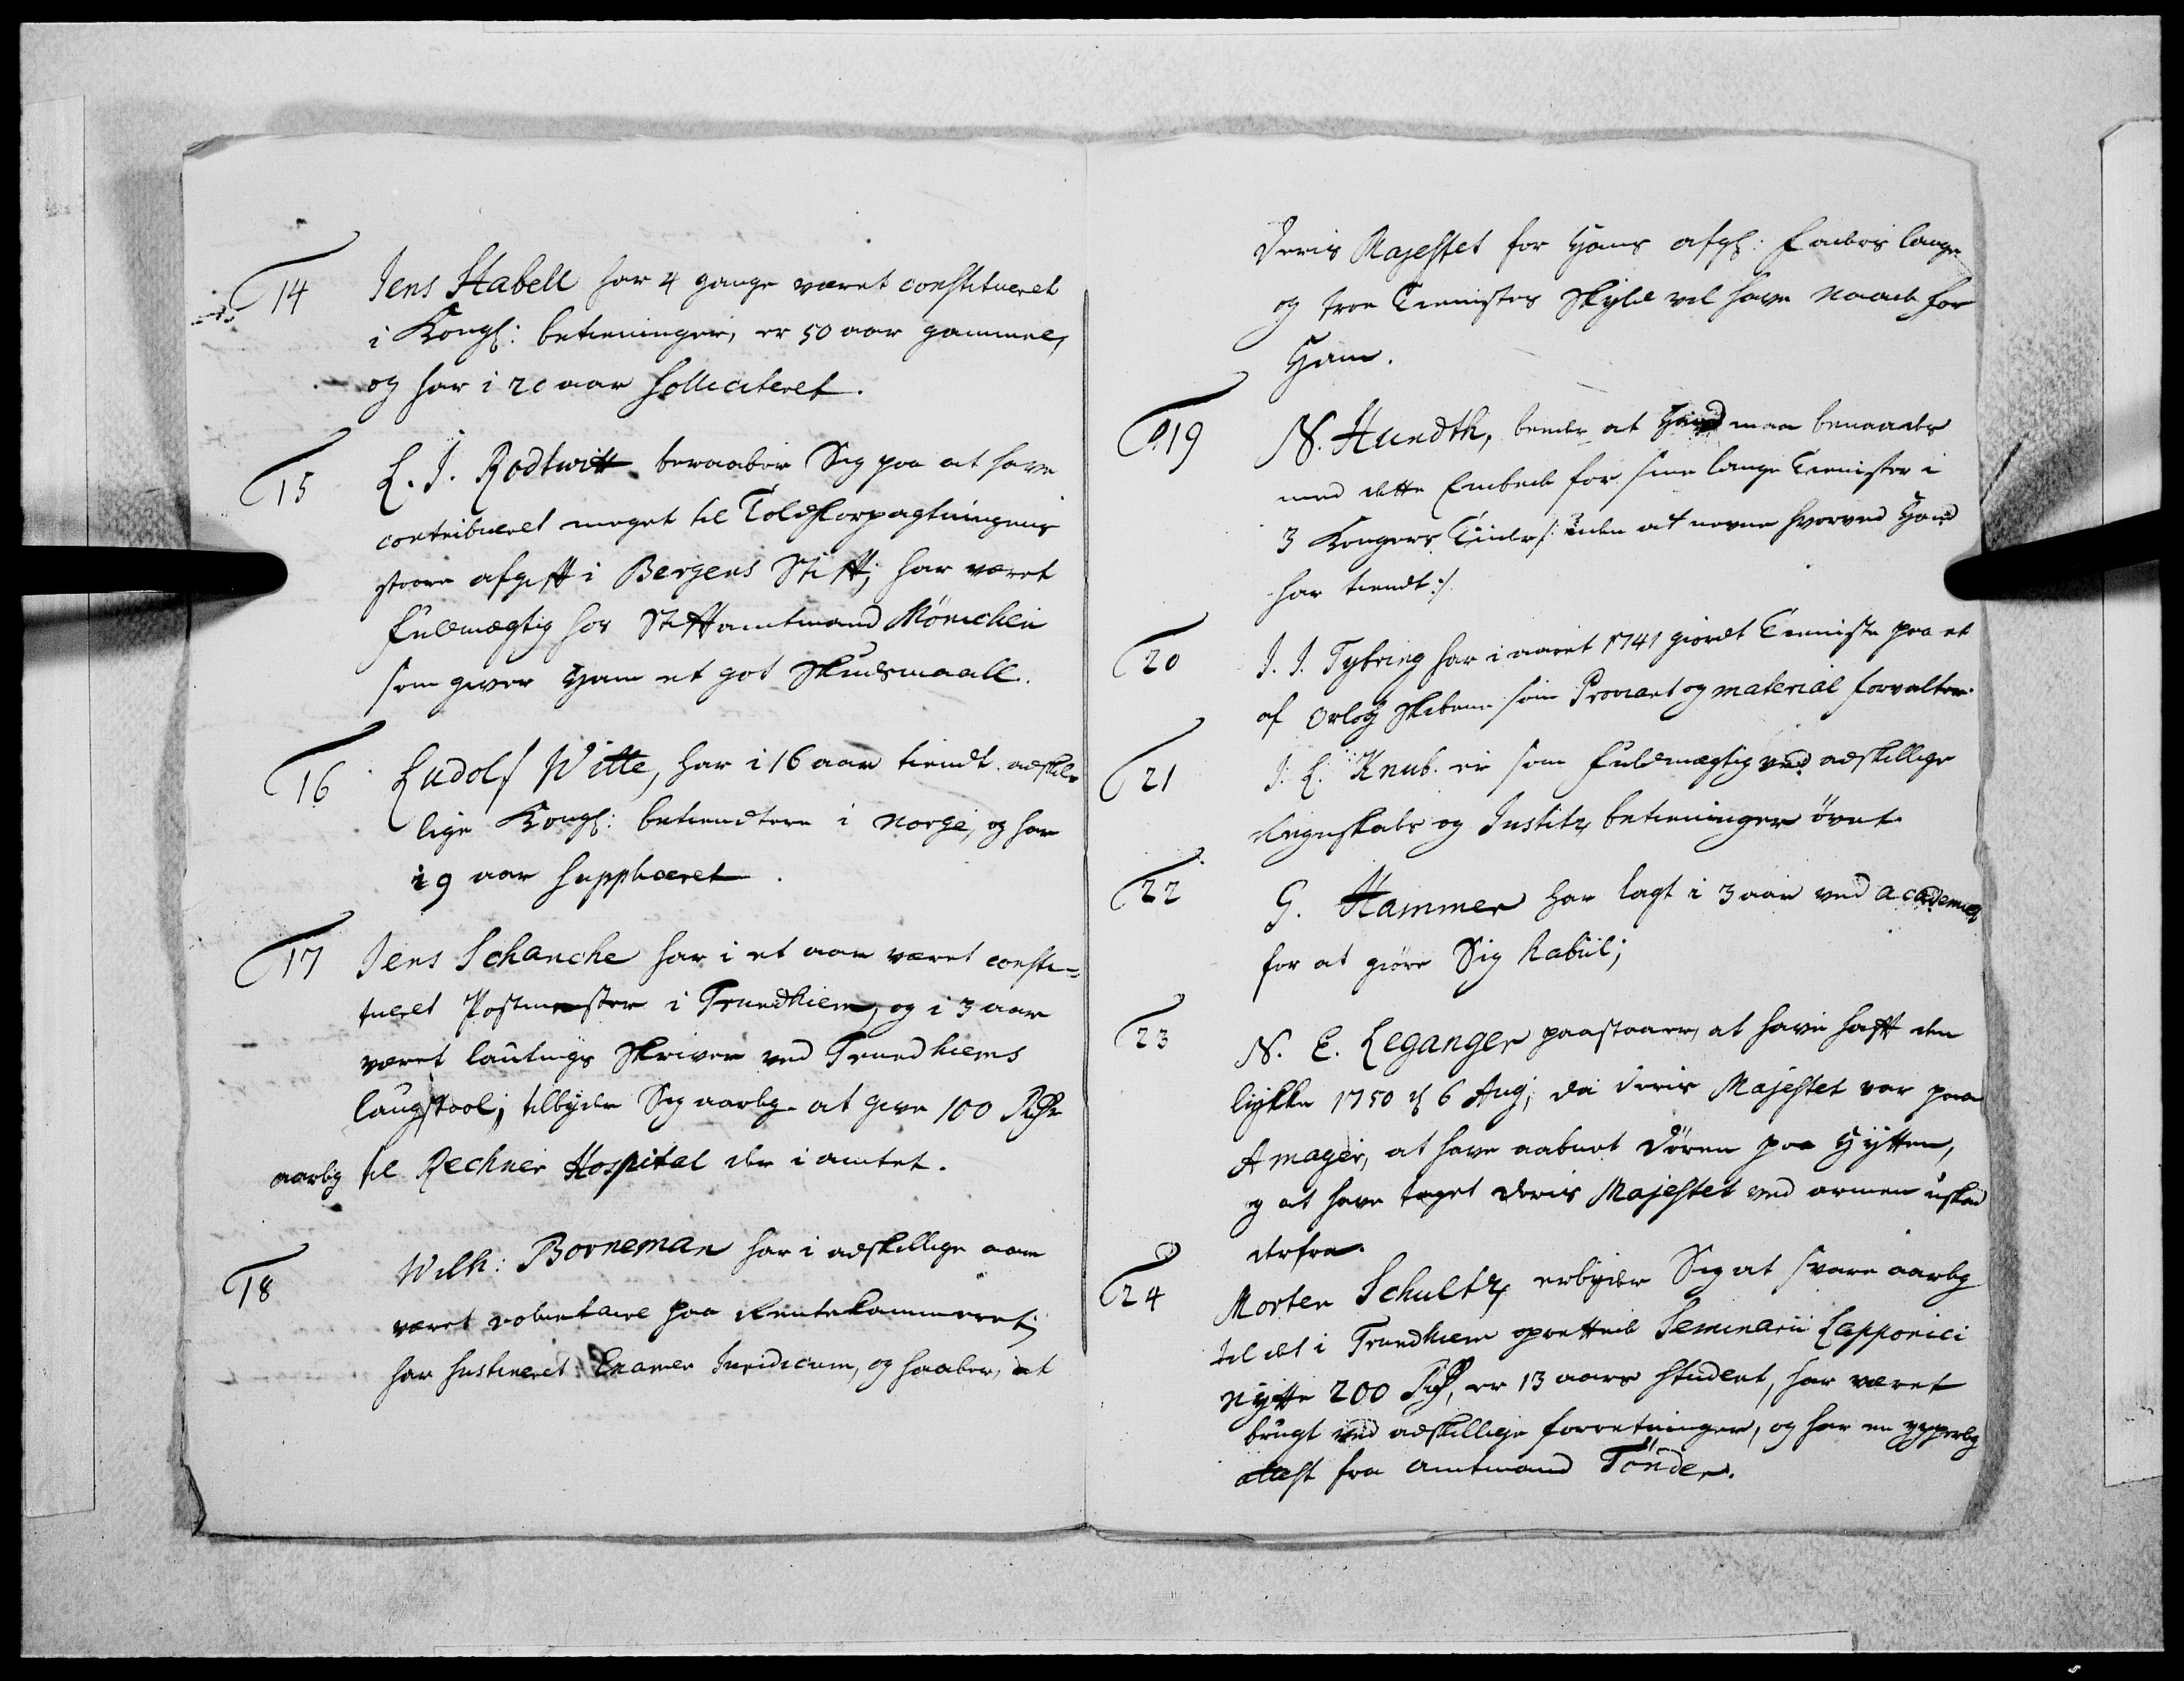 14 Jens Stabell har 4 gange været constitueret
i Kongl: betieninger, er 50 aar gammel,
og har i 20 aar solliciteret.
15 L. J. Rodtwitt beraaber Sig paa at have
contribueret meget til Toldforpagtningens
stoore afgift i Bergens Stift; har været
fuldmægtig hos Stiftamtmand
som giver Ham et got Skudsmaall.
16 Ludolf Witte, har i 16 aar tiendt adskil-
lige Kongl: betiendtere i Norge, og har
i 9 aar suppliceret.
17 Jens Schanche har i et aar været consti-
tueret Postmester i Trundhiem, og i 3 aar
været laugtings Skriver ved Trundhiems
laugstool; tilbyder Sig aarlig at give 100 Rdr
aarlig til Rechner Hospital der i amtet.
18 Wilh: Borneman har i adskillige aar
været volontaire paa Rentekammeret;
har sustineret Examen Juridicum, og haaber, at
Deris Majestet for Hans afgl: Faders lange
og troe Tienistes Skyld vil have naade for
Ham.
19 N. Hundth, beder at Hand maa benaades
med dette Embede for sine lange Tienister i
3 Kongers Tiider /: uden at nevne hvorved Hand
har tiendt :/
20 J. J. Tybring har i aaret 1741 giordt Tieniste paa et
af Orlog Skibene som Proviant og material forvalter.
21 J. L. Knub. er som fuldmægtig ved adskillige
Regnskabs og Justitz betieninger øvet.
22 G. Hammer har lagt i 3 aar ved academiet
for at giøre Sig habiil;
23 N. E. Leganger paastaaer, at have haft den
lykke 1750 d 6 Aug; da Deris Majestet var paa
Amager, at have aabnet Døren paa Hytten,
og at have taget Deris Majestet ved armen
derfra.
24 Morten Schultz erbyder Sig at svare aarlig
til det i Trundhiem oprettede Seminarii Lapponici
Nytte 200 Rdr, er 13 aars student, har været
brugt ved adskillige forretninger, og har en ypperlig
attest fra Amtmand Tønder.